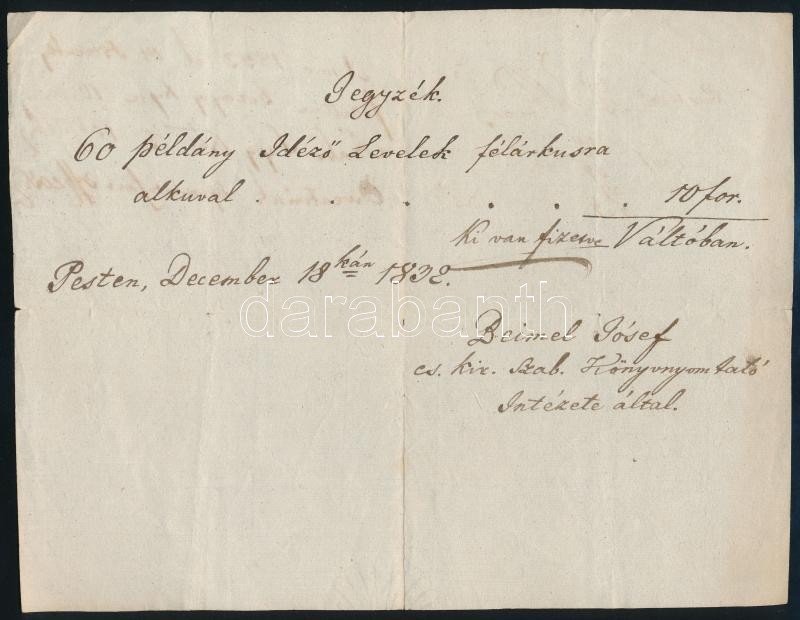 Jegyzék.
60 példány Idéző Levelek félárkusra
alkuval . . . . . . 10 for.
Ki van fizetve Váltóban.
Pesten, December 18kán 1832.
darabanth
Beimel Jósef
cs. kir. szab. Könyvnyomtató
Intézete által.